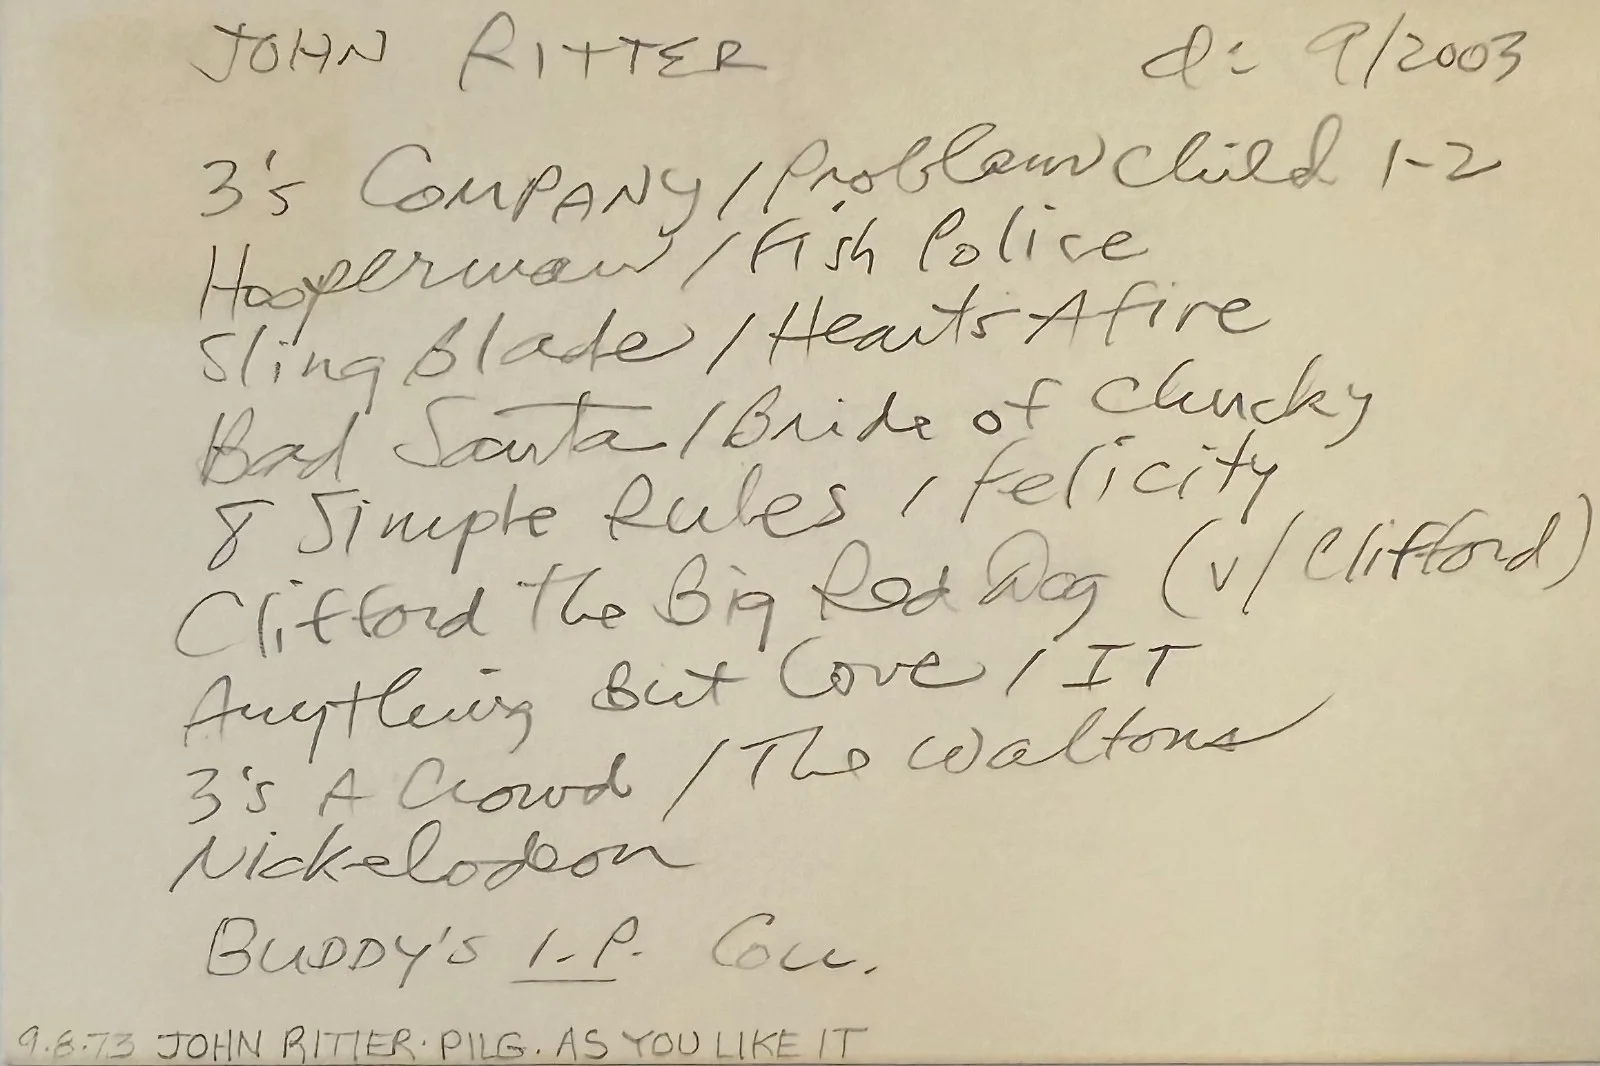 JOHN RITTER d: 9/2003
3's COMPANY / Problem Child 1-2
Hooperman / Fish Police
Sling Blade / Hearts Afire
Bad Santa / Bride of Chucky
8 Simple Rules / Felicity
Clifford The Big Red Dog (v/Clifford)
Anything But Love / IT
3's A Crowd / The Waltons
Nickelodeon
BUDDY'S I.P. Coll.
9.8.73 JOHN RITTER. PILG. AS YOU LIKE IT